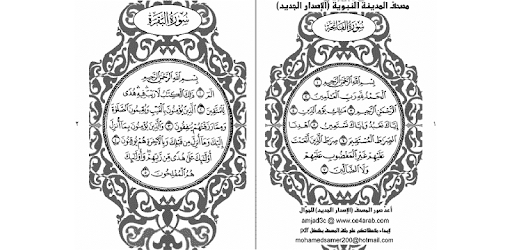 مصحف المدينة النبوية (الإصدار الجديد)
سُورَةُ الفَاتِحَةِ
بِسْمِ ٱللَّهِ ٱلرَّحْمَٰنِ ٱلرَّحِيمِ ١
ٱلْحَمْدُ لِلَّهِ رَبِّ ٱلْعَٰلَمِينَ ٢
ٱلرَّحْمَٰنِ ٱلرَّحِيمِ ٣ مَٰلِكِ يَوْمِ ٱلدِّينِ ٤
إِيَّاكَ نَعْبُدُ وَإِيَّاكَ نَسْتَعِينُ ٥ ٱهْدِنَا
ٱلصِّرَٰطَ ٱلْمُسْتَقِيمَ ٦ صِرَٰطَ ٱلَّذِينَ أَنْعَمْتَ
عَلَيْهِمْ غَيْرِ ٱلْمَغْضُوبِ عَلَيْهِمْ
وَلَا ٱلضَّآلِّينَ ٧
١
أعد صور المصحف (الإصدار الجديد) للجوال
amjad3c @ www.ce4arab.com
المصحف بشكل pdf
mohamedsamer200@hotmail.com
سُورَةُ البَقَرَةِ
بِسْمِ ٱللَّهِ ٱلرَّحْمَٰنِ ٱلرَّحِيمِ
الٓمٓ ١ ذَٰلِكَ ٱلْكِتَٰبُ لَا رَيْبَ فِيهِ هُدًى
لِّلْمُتَّقِينَ ٢ ٱلَّذِينَ يُؤْمِنُونَ بِٱلْغَيْبِ وَيُقِيمُونَ ٱلصَّلَوٰةَ
وَمِمَّا رَزَقْنَٰهُمْ يُنفِقُونَ ٣ وَٱلَّذِينَ يُؤْمِنُونَ بِمَآ أُنزِلَ
إِلَيْكَ وَمَآ أُنزِلَ مِن قَبْلِكَ وَبِٱلْءَاخِرَةِ هُمْ يُوقِنُونَ ٤
أُو۟لَٰٓئِكَ عَلَىٰ هُدًى مِّن رَّبِّهِمْ وَأُو۟لَٰٓئِكَ
هُمُ ٱلْمُفْلِحُونَ ٥
٢